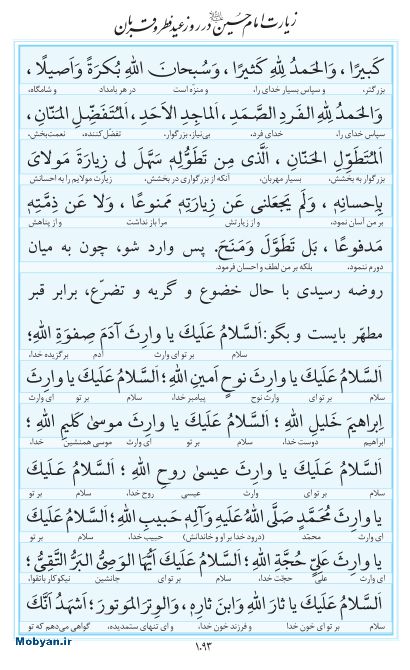 زیارت امام حسین در روز عید فطر و قربان
كَبيرًا ، وَالحَمدُ لِلّٰهِ كَثيرًا ، وَسُبحانَ اللّٰهِ بُكرَةً وَاَصيلًا ،
بزرگتر، و سپاس بسیار خدای را، و منزّه است در هر بامداد و شامگاه،
وَالحَمدُ لِلّٰهِ الفَردِ الصَّمَدِ ، اَلماجِدِ الاَحَدِ ، اَلمُتَفَضِّلِ المَنّانِ ،
سپاس خدای را، خدای فرد، بی‌نیاز، بزرگوار، تفضّل‌کننده، نعمت‌بخش،
اَلمُتَطَوِّلِ الحَنّانِ ، اَلَّذى مِن تَطَوُّلِهِ سَهَّلَ لى زِيارَةَ مَولاىَ
بزرگوار به بخشش، بسیار مهربان، آنکه از بزرگواری در بخشش، زیارت مولایم را به احسانش
بِاِحسانِهِ ، وَلَم يَجعَلنى عَن زِيارَتِهِ مَمنوعًا ، وَلا عَن ذِمَّتِهِ
بر من آسان نمود، و از زیارتش مرا باز نداشت و از پناهش
مَدفوعًا ، بَل تَطَوَّلَ وَمَنَحَ. پس وارد شو، چون به میان
دورم ننمود، بلکه بر من لطف و احسان فرمود.
روضه رسیدی با حال خضوع و گریه و تضرّع، برابر قبر
مطهّر بایست و بگو: اَلسَّلامُ عَلَيكَ يا وارِثَ آدَمَ صِفوَةِ اللّٰهِ؛
سلام بر تو ای وارث آدم برگزیده خدا،
اَلسَّلامُ عَلَيكَ يا وارِثَ نوحٍ اَمينِ اللّٰهِ ؛ اَلسَّلامُ عَلَيكَ يا وارِثَ
سلام بر تو ای وارث نوح پیامبر خدا، سلام بر تو ای وارث
اِبراهيمَ خَليلِ اللّٰهِ ؛ اَلسَّلامُ عَلَيكَ يا وارِثَ موسىٰ كَليمِ اللّٰهِ ؛
ابراهیم دوست خدا، سلام بر تو ای وارث موسی همنشین خدا،
اَلسَّلامُ عَلَيكَ يا وارِثَ عيسىٰ روحِ اللّٰهِ ؛ اَلسَّلامُ عَلَيكَ
سلام بر تو ای وارث عیسی روح خدا، سلام بر تو
يا وارِثَ مُحَمَّدٍ صَلَّى اللّٰهُ عَلَيهِ وَآلِهِ حَبيبِ اللّٰهِ ؛ اَلسَّلامُ عَلَيكَ
ای وارث محمّد (درود خدا بر او و خاندانش) حبیب خدا، سلام بر تو
يا وارِثَ عَلِىٍّ حُجَّةِ اللّٰهِ ؛ اَلسَّلامُ عَلَيكَ اَيُّهَا الوَصِىُّ البَرُّ التَّقِىُّ ؛
ای وارث علی حجّت خدا، سلام بر تو ای جانشین نیکوکار باتقوا،
اَلسَّلامُ عَلَيكَ يا ثارَ اللّٰهِ وَابنَ ثارِهِ ، وَالوِترَ المَوتورَ ؛ اَشهَدُ اَنَّكَ
سلام بر تو ای خون خدا و فرزند خون خدا، و ای تنهای ستمدیده، گواهی می‌دهم که تو
۱۰۹۳
Mobyan.ir